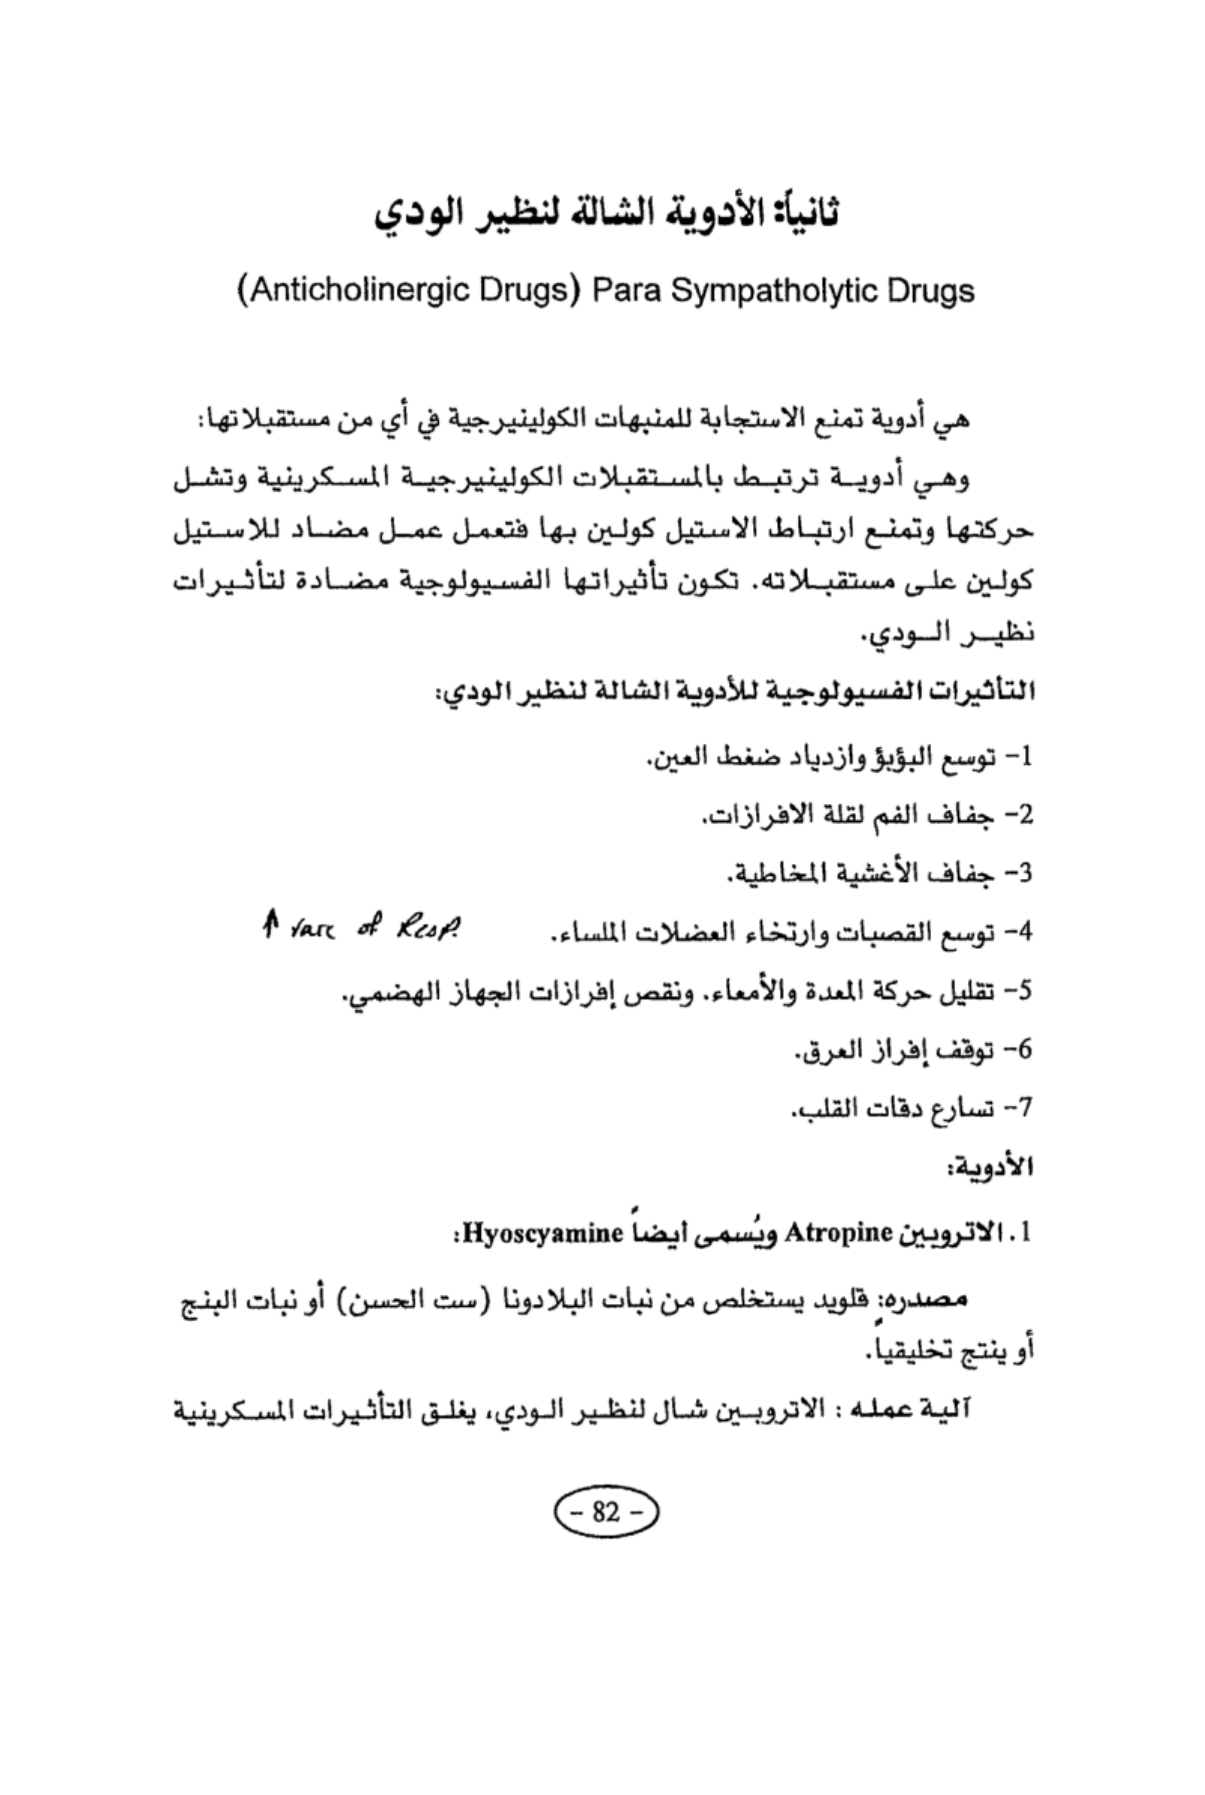 ثانياً: الأدوية الشالة لنظير الودي
(Anticholinergic Drugs) Para Sympatholytic Drugs
هي أدوية تمنع الاستجابة للمنبهات الكولينيرجية في أي من مستقبلاتها:
وهي أدوية ترتبط بالمستقبلات الكولينيرجية المسكرينية وتشل
حركتها وتمنع ارتباط الاستيل كولين بها فتعمل عمل مضاد للاستيل
كولين على مستقبلاته. تكون تأثيراتها الفسيولوجية مضادة لتأثيرات
نظير الودي.
التأثيرات الفسيولوجية للأدوية الشالة لنظير الودي:
1- توسع البؤبؤ وازدياد ضغط العين.
2- جفاف الفم لقلة الافرازات.
3- جفاف الأغشية المخاطية.
4- توسع القصبات وارتخاء العضلات الملساء. ↑ of Resp.
5- تقليل حركة المعدة والأمعاء. ونقص إفرازات الجهاز الهضمي.
6- توقف إفراز العرق.
7- تسارع دقات القلب.
الأدوية:
1. الاتروبين Atropine ويُسمى ايضاً Hyoscyamine:
مصدره: قلويد يستخلص من نبات البلادونا (ست الحسن) أو نبات البنج
أو ينتج تخليقياً.
آلية عمله : الاتروبين شال لنظير الودي، يغلق التأثيرات المسكرينية
- 82 -